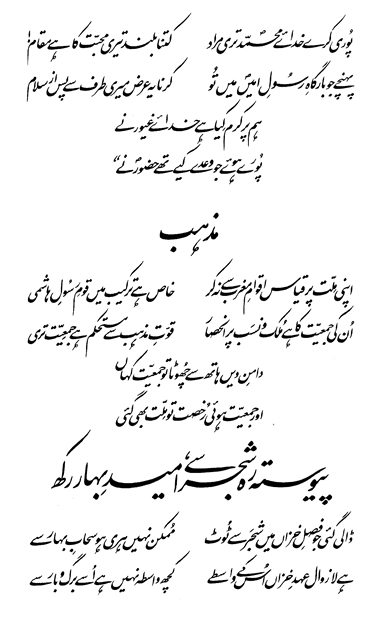 پوری کرے خدائے محمدؐ تری مراد کتنا بلند تیری محبت کا ہے مقام!
پہنچے جو بارگاہِ رسولِ امیںؐ میں تُو کرنا یہ عرض میری طرف سے پس از سلام
ہم پر کرم کیا ہے خدائے غیور نے
پُورے ہوئے جو وعدے کیے تھے حضورؐ نے“
مذہب
اپنی ملّت پر قیاس اقوامِ مغرب سے نہ کر خاص ہے ترکیب میں قومِ رسُولِ ہاشمی
اُن کی جمعیّت کا ہے مُلک و نسَب پر انحصار قوّتِ مذہب سے مستحکم ہے جمعیّت تری
دامنِ دیں ہاتھ سے چھُوٹا تو جمعیّت کہاں
اور جمعیّت ہوئی رُخصت تو ملّت بھی گئی
پیوستہ رہ شجر سے، امیدِ بہار رکھ
ڈالی گئی جو فصلِ خزاں میں شجر سے ٹُوٹ مُمکن نہیں ہری ہو سحابِ بہار سے
ہے لازوال عہدِ خزاں اُس کے واسطے کچھ واسطہ نہیں ہے اُسے برگ و بار سے